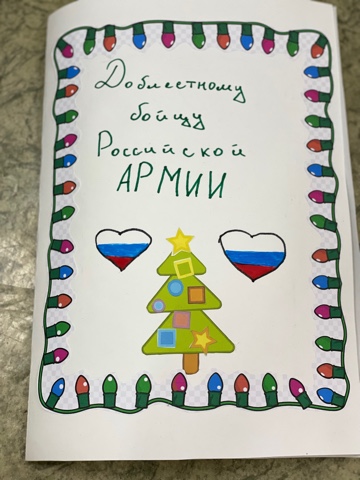 Доблестному
бойцу
Российской
АРМИИ